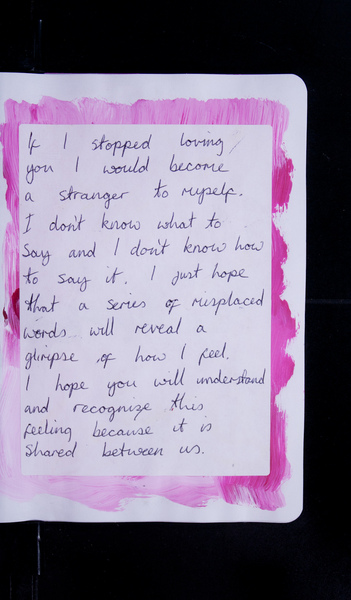 If I stopped loving
you I would become
a stranger to myself.
I don't know what to
say and I don't know how
to say it. I just hope
that a series of misplaced
words will reveal a
glimpse of how I feel.
I hope you will understand
and recognize this
feeling because it is
shared between us.